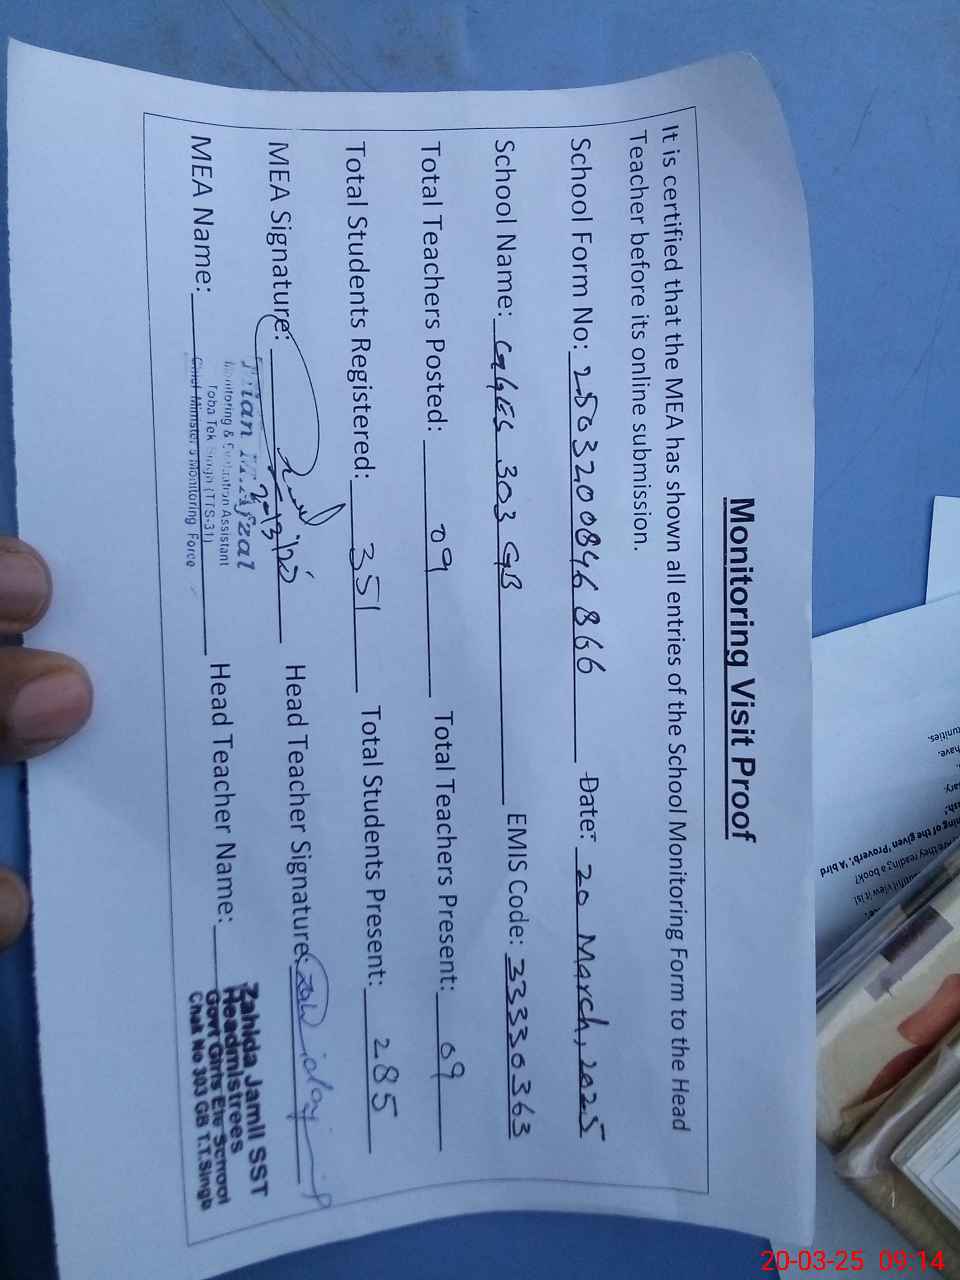 Monitoring Visit Proof
It is certified that the MEA has shown all entries of the School Monitoring Form to the Head
Teacher before its online submission.
School Form No: 2503200846866 Date: 20 March, 2025
School Name: GGES 303 GB EMIS Code: 33330363
Total Teachers Posted: 09 Total Teachers Present: 09
Total Students Registered: 351 Total Students Present: 285
MEA Signature: Head Teacher Signature:
MEA Name: Head Teacher Name:
Afzal
Monitoring & Evaluation Assistant
Toba Tek Singh (TTS-31)
Chief Minister's Monitoring Force
Zahida Jamil SST
Headmistrees
Govt Girls Ele School
Chak No 303 GB T.T.Singh
unities.
have.
reading a book?
ning of the given 'Proverb': 'A bird
20-03-25 09:14